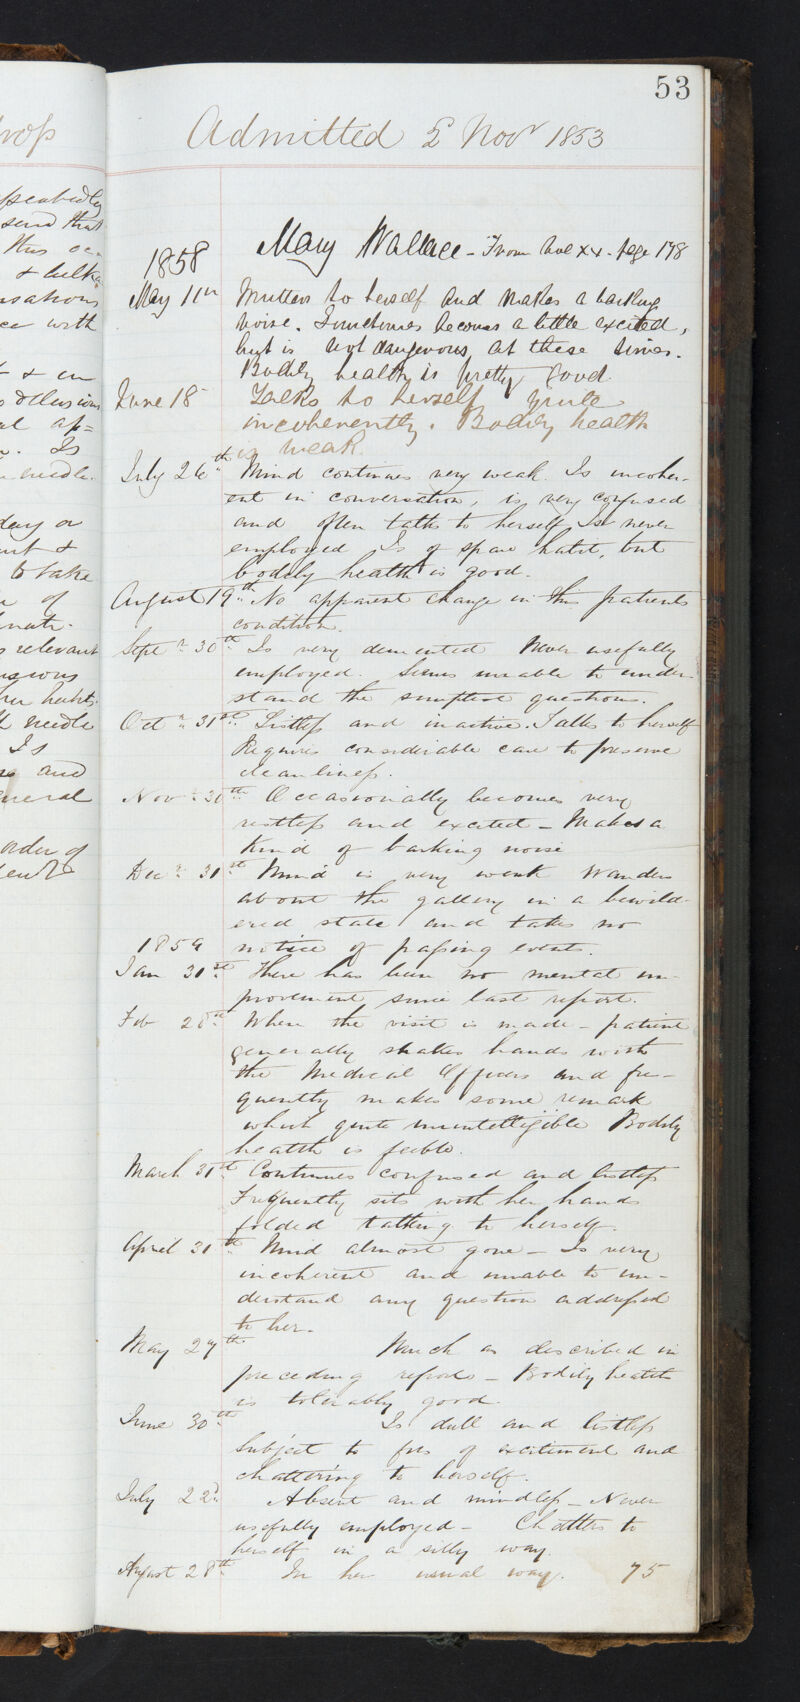 53
Admitted 2 Novr 1853
Mary Wallace - From Vol XX. page 178
1858
May 11th Mutters to herself and makes a barking
noise. Sometimes becomes a little excited,
but is not dangerous at these times.
Bodily health is pretty good
June 18 Talks to herself quite
incoherently. Bodily health
is weak.
July 26th Mind continues very weak. Is incoher-
ent in conversation, is very confused
and often talks to herself. Is never
employed Is of spare habit, but
bodily health is good.
August 19th No apparent change in this patients
condition.
Septr 30th Is very demented Never usefully
employed. Seems unable to under-
stand the simplest questions.
Octr 31st Listless and inactive. Talks to herself
Requires considerable care to preserve
cleanliness.
Novr 30th Occasionally becomes very
restless and excited - Makes a
kind of barking noise
Decr 31st Mind is very weak Wanders
about the gallery in a bewild-
ered state and takes no
1859 notice of passing events.
Jan 31st There has been no mental im-
provement since last report.
Feb 28th When the visit is made - patient
generally shakes hands with
the Medical Officers and fre-
quently makes some remark
which quite unintelligible Bodily
health is feeble.
March 31st Continues confused and listless
Frequently sits with her hands
folded talking to herself.
April 30th Mind almost gone - Is very
incoherent and unable to un-
derstand any question addressed
to her.
May 27th Much as described in
preceding reports - Bodily health
is tolerably good.
June 30th Is dull and listless
Subject to fits of excitement and
chattering to herself.
July 22d Absent and mindless - Never
usefully employed - Chatters to
herself in a silly way.
August 28th In her usual way. 75